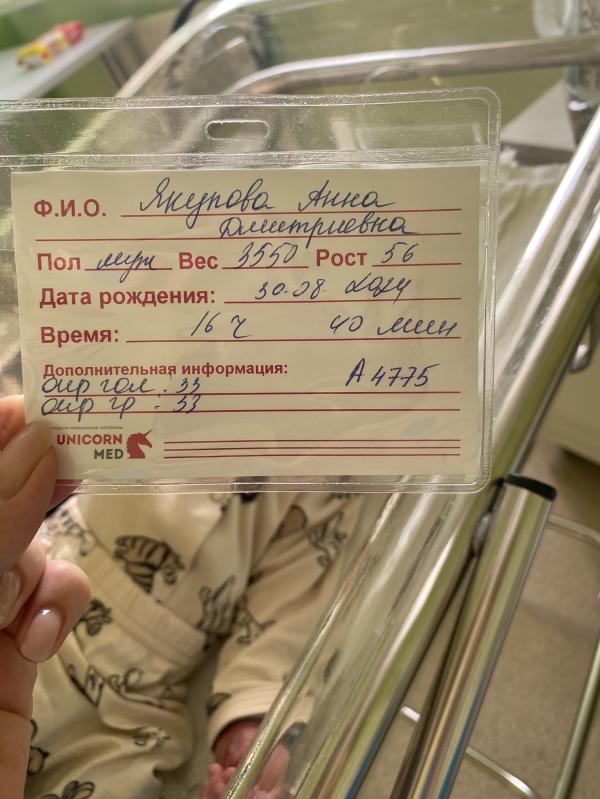 Ф.И.О. Якупова Анна
Дмитриевна
Пол муж Вес 3550 Рост 56
Дата рождения: 30.08.2024
Время: 16 ч 40 мин
Дополнительная информация:
А 4775
окр гол : 33
окр гр : 33
UNICORN
MED